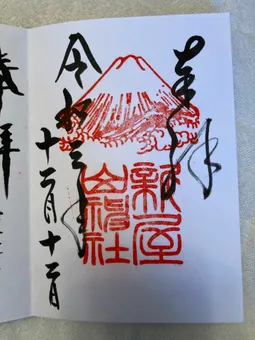 奉拝
新屋
山神社
令和三年
十二月十二日
拝